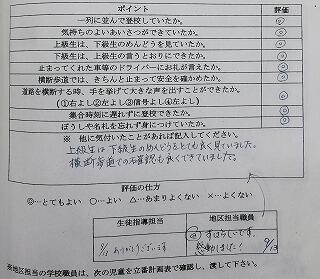 ポイント 評価
一列に並んで登校していたか。 ◎
気持ちのよいあいさつができていたか。 ◎
上級生は、下級生のめんどうを見ていたか。 ◎
下級生は、上級生の言うとおりにできたか。 ◎
止まってくれた車等のドライバーにお礼が言えたか。 ◎
横断歩道では、きちんと止まって安全を確かめたか。 ◎
道路を横断する時、手を挙げて大きな声を出すことができたか。
(①右よし②左よし③信号よし④左よし) ◎
集合時刻に遅れずに登校できたか。 ◎
ぼうしや名札を忘れず身につけていたか。 ◎
※ 他に気付いたことがあれば記入してください。
上級生は下級生のめんどうをとても良く見ていました。
横断歩道での確認も良くできていました。
評価の仕方
◎…とてもよい ○…よい △…あまりよくない ×…よくない
生徒指導担当 地区担当職員
ありがとうございます すばらしいです。
感動しました! 9/13
※地区担当の学校職員は、次の児童を立番計画表で確認し、渡して下さい。